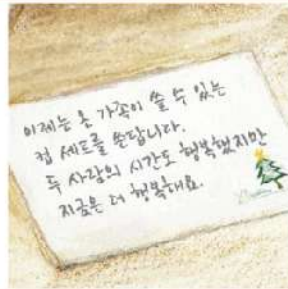 이제는 온 가족이 쓸 수 있는
컵 세트를 쓴답니다.
두 사람의 시간도 행복했지만
지금은 더 행복해요.